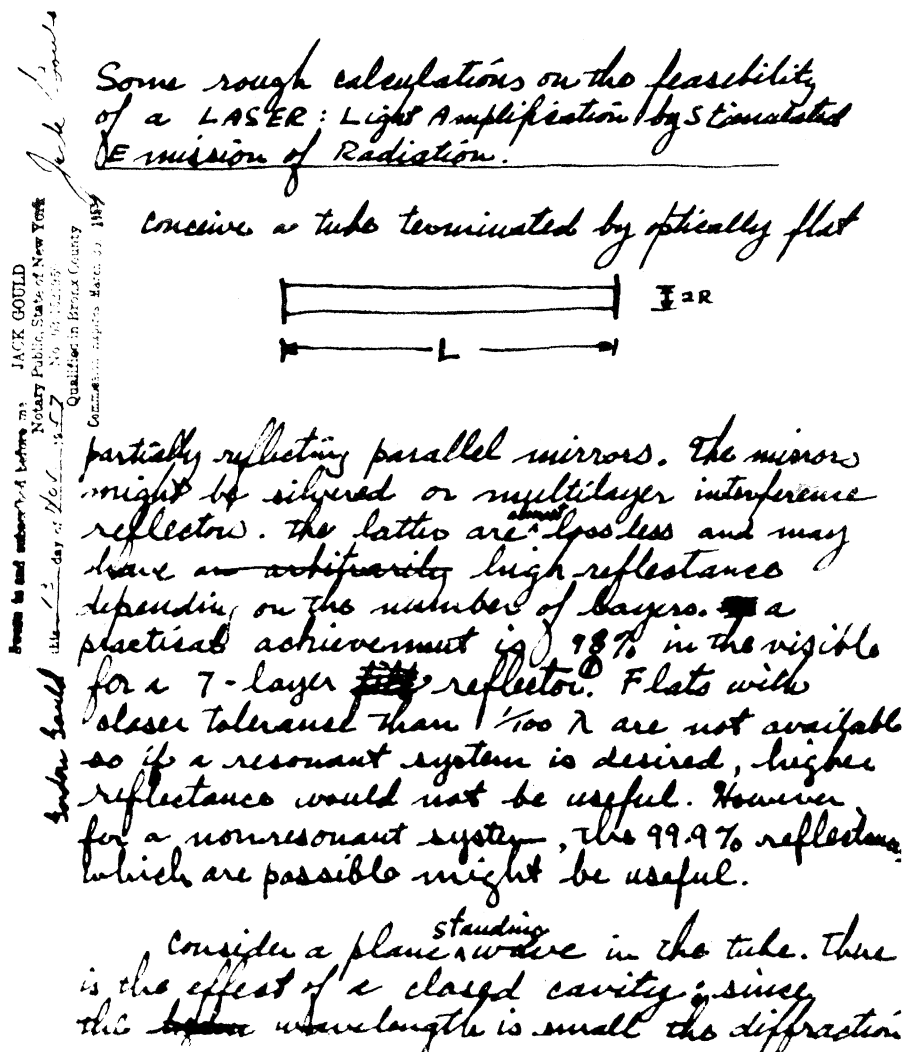 Some rough calculations on the feasibility
of a LASER: Light Amplification by Stimulated
Emission of Radiation.
conceive a tube terminated by optically flat
2R
L
partially reflecting parallel mirrors. The mirrors
might be silvered or multilayer interference
reflectors. The latter are almost lossless and may
have an arbitrarily high reflectance
depending on the number of layers. a
practical achievement is 98% in the visible
for a 7-layer reflector.① Flats with
closer tolerance than 1/100 λ are not available
so if a resonant system is desired, higher
reflectance would not be useful. However
for a nonresonant system, the 99.9% reflectances
which are possible might be useful.
Consider a plane standing wave in the tube. There
is the effect of a closed cavity; since
the wavelength is small the diffraction
Jack Gould
Sworn to and subscribed before me
this 13 day of Nov 1957
JACK GOULD
Notary Public, State of New York
Qualified in Bronx County
Commission expires March 30, 1959
Gordon Gould